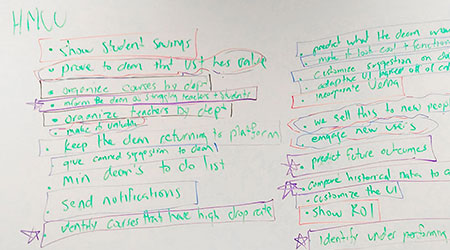 HMW
• Show Student Savings
• prove to dean that UST has value
• organize courses by dept
• inform the dean of struggling teachers + students
• organize teachers by dept
• make it valuable
• keep the dean returning to platform
give canned suggestion to dean
min dean's to do list
send notifications
• identify courses that have high drop rate
predict what the dean
• make it look cool + function
• customize suggestion on
• adaptive UI based off of
• incorporate
• we sell this to new peop
• engage new users
• predict future outcomes
• compare historical data to
• customize the UI
• Show ROI
• identify under performing